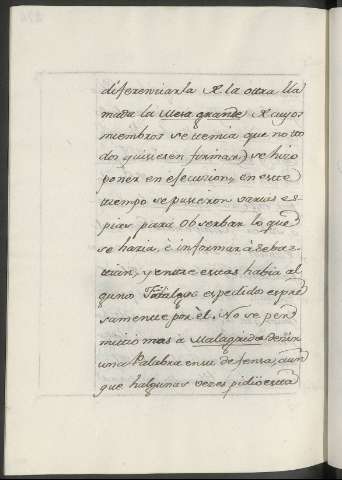 diferenciarla de la ottra lla
mada la Mesa grande de cuyos
miembros se ttemia que no tto
dos quisiesen firmar,) se hizo
poner en efecuzion, en estte
ttiempo se pusieron varias es
pias para Observar lo que
se hazia, è informar à Sebas
ttian, y enttre esttas habia al
guno espedido espre
samentte por el. No se per
mittio mas à Malagrida dezir
una Palabra en su defensa, aun
que halgunas vezes pidio estta